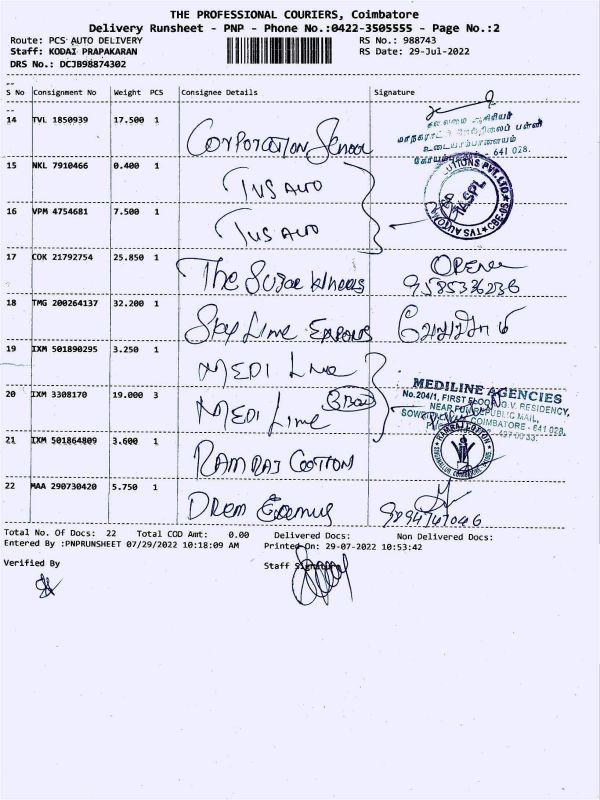 THE PROFESSIONAL COURIERS, Coimbatore
Delivery Runsheet - PNP - Phone No.:0422-3505555 - Page No.:2
Route: PCS AUTO DELIVERY RS No.: 988743
Staff: KODAI PRAPAKARAN RS Date: 29-Jul-2022
DRS No.: DCJB98874302
S No Consignment No Weight PCS Consignee Details Signature
14 TVL 1850939 17.500 1 Corporation School
தலைமை ஆசிரியர்
மாநகராட்சி மேல்நிலைப் பள்ளி
உடையாம்பாளையம்
- 641 028.
15 NKL 7910466 0.400 1 TVS Auto
UTIONS PVT.LTD. ★ CBE-05 ★ TVS AUTO
TASPL
16 VPM 4754681 7.500 1 TVS Auto
17 COK 21792754 25.850 1 The Sugar Wheels
9585336236
18 TMG 200264137 32.200 1 Sky Line Exports
19 IXM 501890295 3.250 1 MEDI Line
20 IXM 3308170 19.000 3 MEDI Line 3 Box
MEDILINE AGENCIES
No.204/1, FIRST FLOOR, G.V. RESIDENCY,
NEAR FUN REPUBLIC MALL,
COIMBATORE - 641 028.
21 IXM 501864809 3.600 1 RAMRAJ COTTON
RAMRAJ COTTON
22 MAA 290730420 5.750 1
Total No. Of Docs: 22 Total COD Amt: 0.00 Delivered Docs: Non Delivered Docs:
Entered By :PNPRUNSHEET 07/29/2022 10:18:09 AM Printed On: 29-07-2022 10:53:42
Verified By Staff Signature